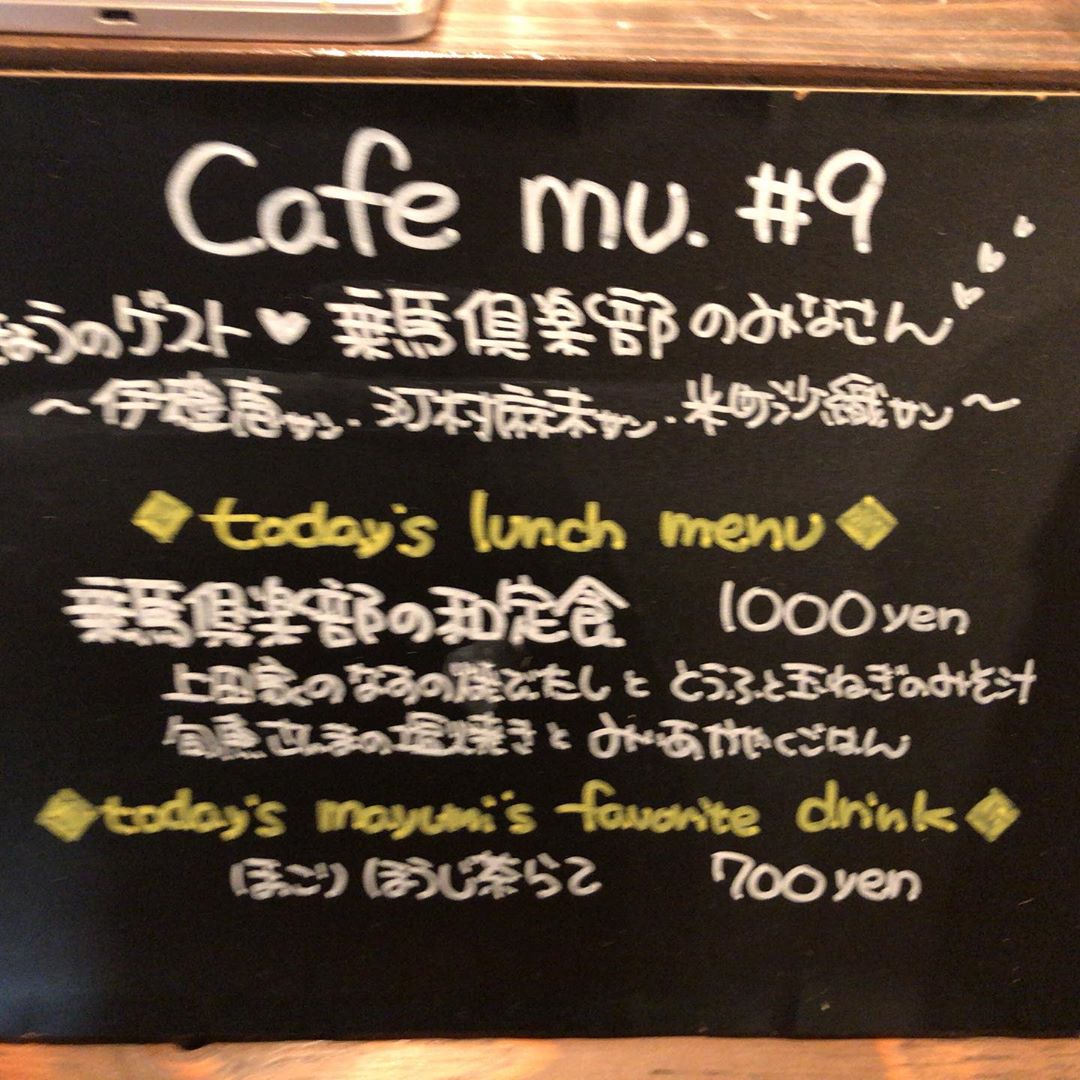 Cafe mu. #9
きょうのゲスト♥乗馬倶楽部のみなさん
～伊禮恵サン・河村麻未サン・米町沙織サン～
◆today's lunch menu◆
乗馬倶楽部の和定食 1000yen
上田家のなすの焼びたしと とうふと玉ねぎのみそ汁
旬魚さんまの塩焼きと ごはん
◆today's mayumi's favorite drink◆
ほっこりほうじ茶らて 700yen